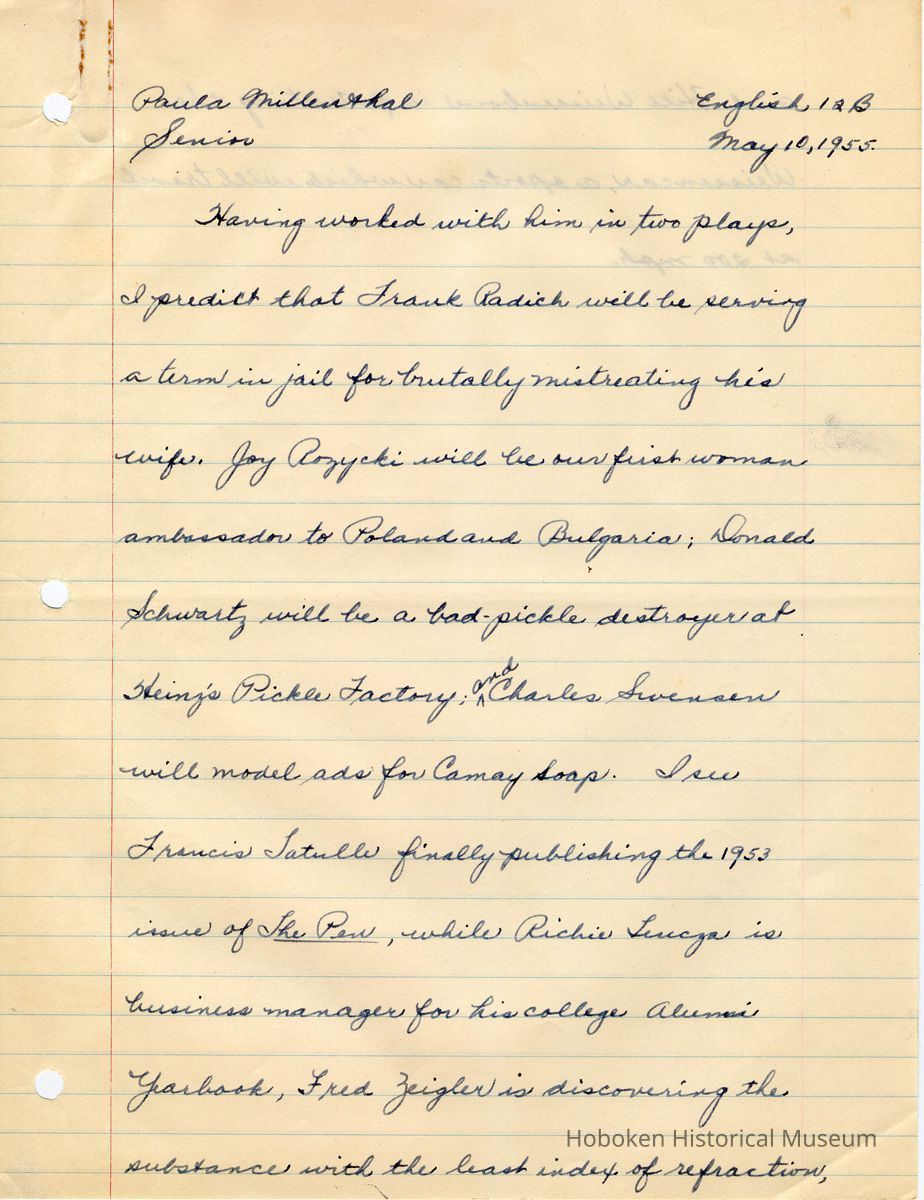 Paula Millenthal English 12B
Senior May 10, 1955.
Having worked with him in two plays,
I predict that Frank Radich will be serving
a term in jail for brutally mistreating his
wife. Joy Rozycki will be our first woman
ambassador to Poland and Bulgaria; Donald
Schwartz will be a bad-pickle destroyer at
Heinz's Pickle Factory; and Charles Swensen
will model ads for Camay Soap. I see
Francis Tatulle finally publishing the 1953
issue of The Pen, while Richie Tencza is
business manager for his college Alumni
Yearbook, Fred Zeigler is discovering the
substance with the least index of refraction,
Hoboken Historical Museum